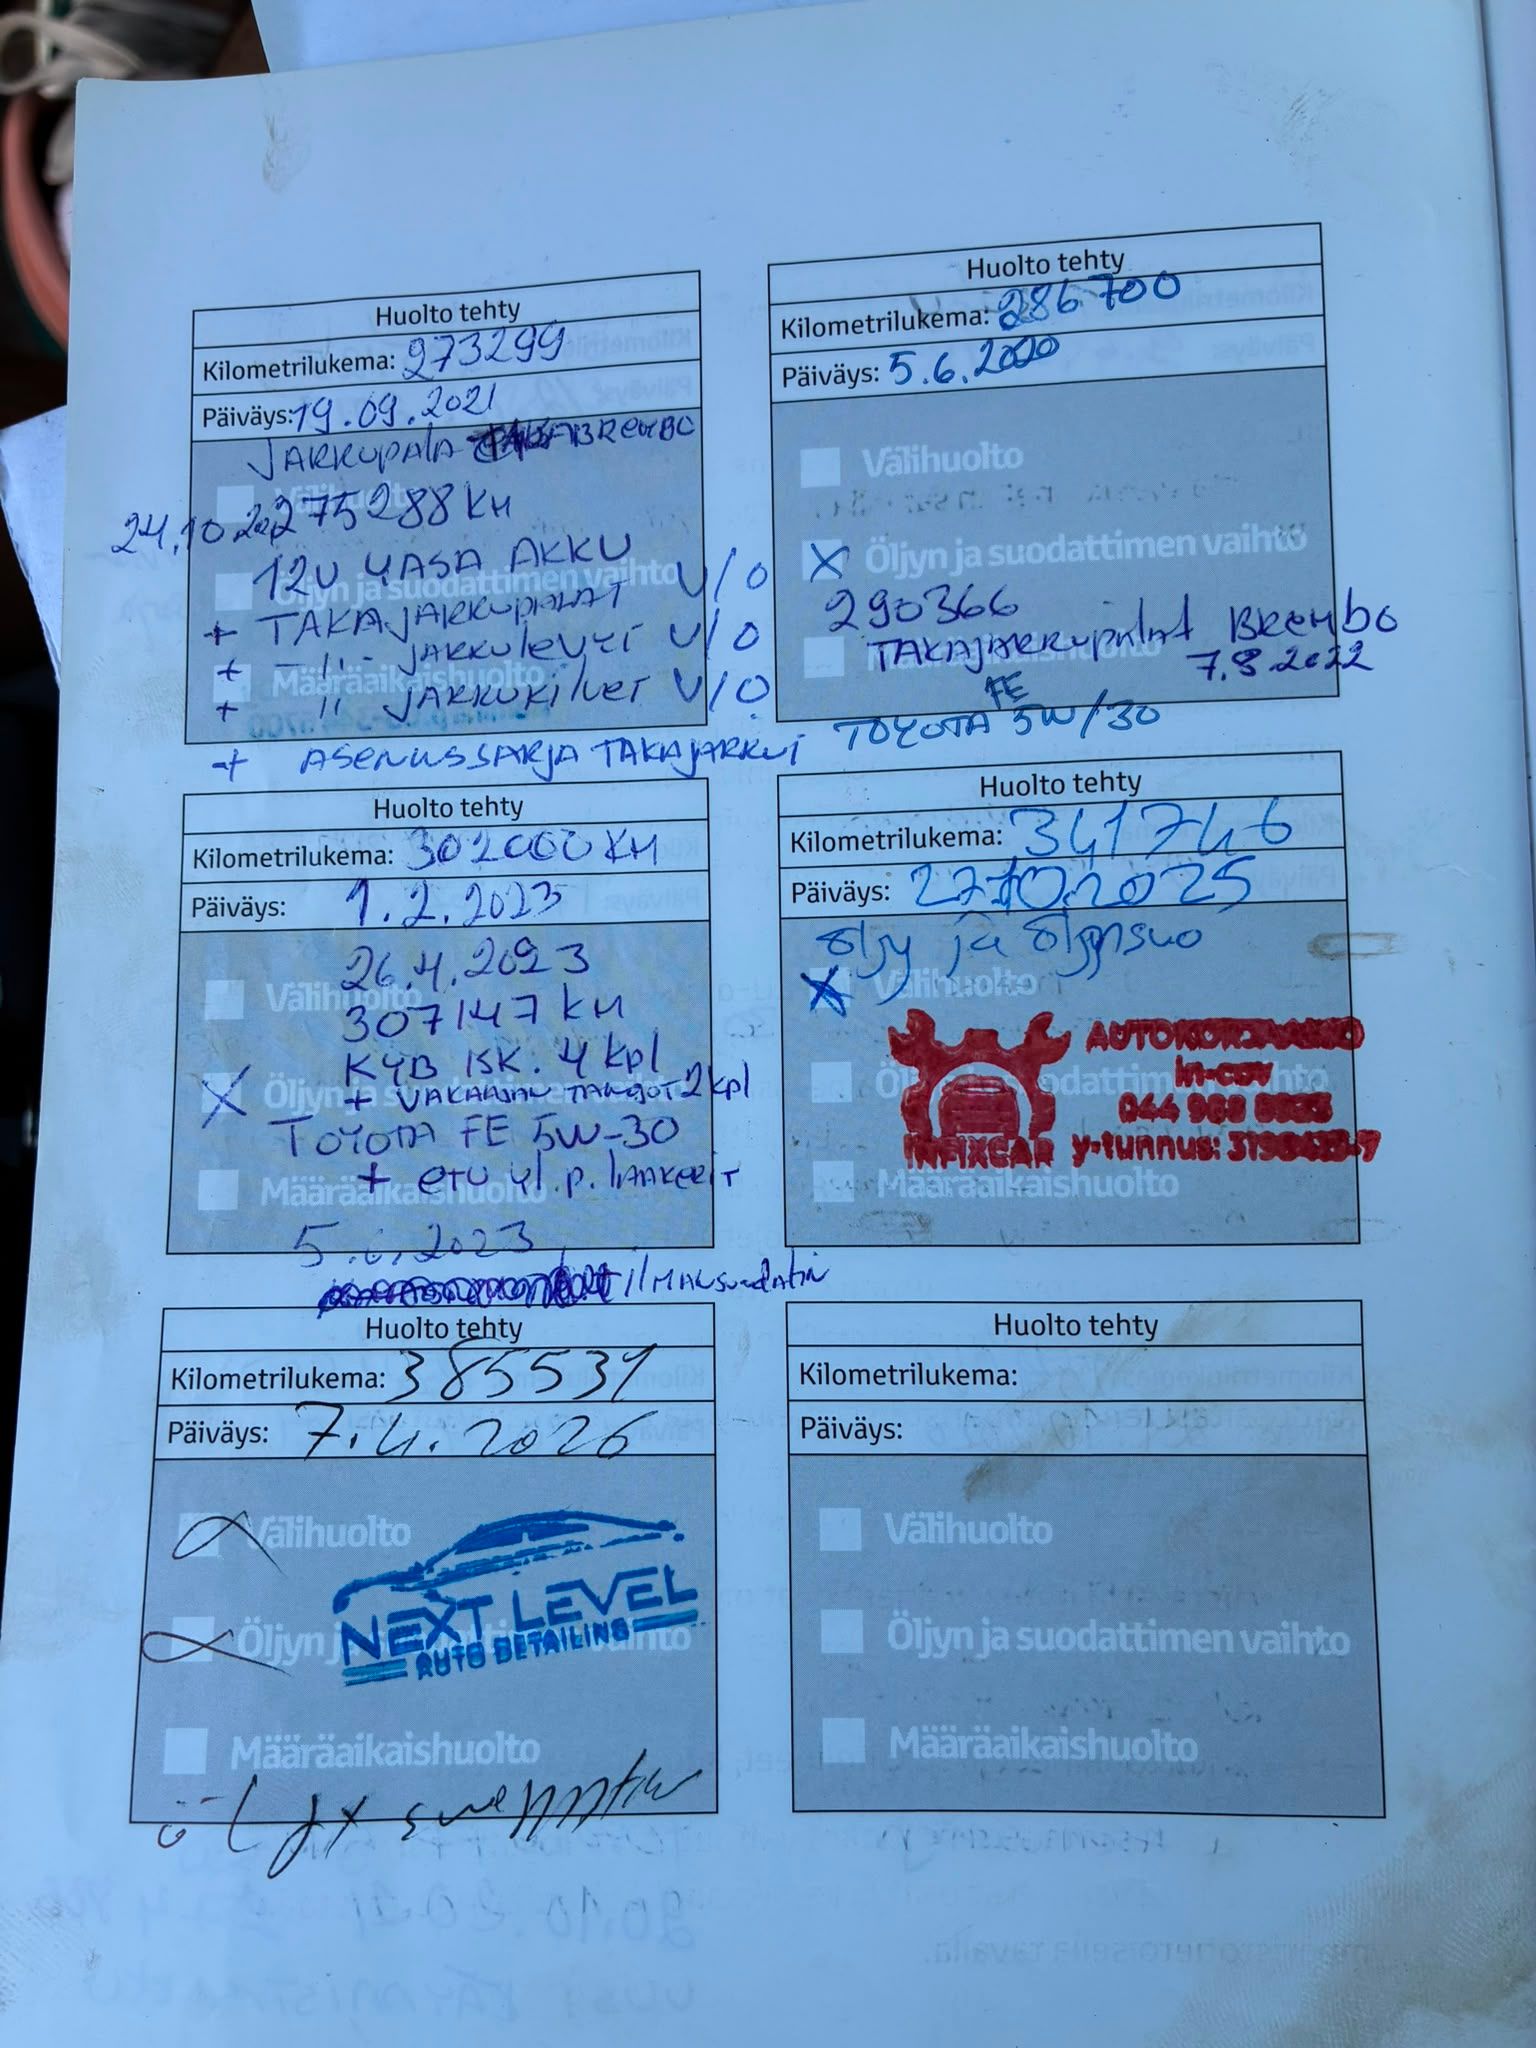 Huolto tehty
Kilometrilukema: 273299
Päiväys: 19.09.2021
JARRUPALA BREMBO
24.10.2021 275288 KM
12V YASA AKKU
Öljyn ja suodattimen vaihto
+ TAKAJARRUPALAT V/O
+ -"- JARRULEVYT V/O
Määräaikaishuolto
+ " JARRUKILVET V/O
+ ASENNUSSARJA TAKAJARRUT
Huolto tehty
Kilometrilukema: 286700
Päiväys: 5.6.2020
Välihuolto
X Öljyn ja suodattimen vaihto
290366
TAKAJARRUPALAT BREMBO
7.8.2022
FE
TOYOTA 5W/30
Huolto tehty
Kilometrilukema: 302000 KM
Päiväys: 1.2.2023
26.4.2023
Välihuolto
307147 KM
KYB ISK. 4 kpl
X Öljyn ja suodattimen vaihto
+ VAKAAJAN TANGOT 2 kpl
TOYOTA FE 5W-30
+ ETU yl. p. LAAKERIT
Määräaikaishuolto
5.6.2023
ILMANSUODATIN
Huolto tehty
Kilometrilukema: 341746
Päiväys: 27.10.2025
öljy ja öljynsuo
X Välihuolto
AUTOKORJAAMO
Öljyn ja suodattimen vaihto
INFIXCAR
Määräaikaishuolto
Huolto tehty
Kilometrilukema: 385531
Päiväys: 7.4.2026
Välihuolto
Öljyn ja suodattimen vaihto
NEXT LEVEL
AUTO DETAILING
Määräaikaishuolto
Huolto tehty
Kilometrilukema:
Päiväys:
Välihuolto
Öljyn ja suodattimen vaihto
Määräaikaishuolto